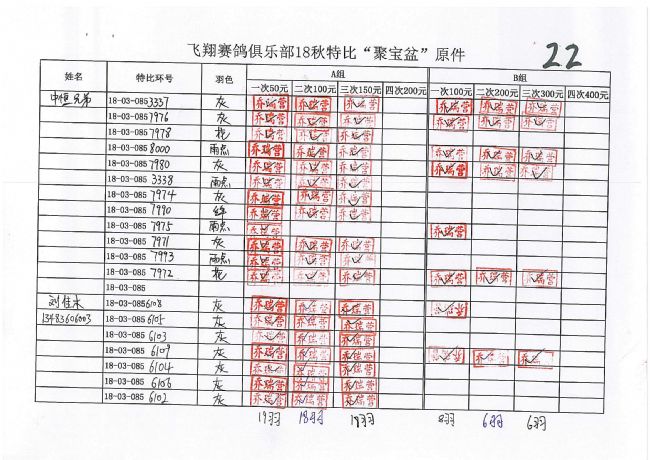 飞翔赛鸽俱乐部18秋特比“聚宝盆”原件 22
姓名 特比环号 羽色 A组 B组
一次50元 二次100元 三次150元 四次200元 一次100元 二次200元 三次300元 四次400元
中恒兄弟 18-03-085 3337 灰 乔瑞营 乔瑞营 乔瑞营 乔瑞营 乔瑞营 乔瑞营
18-03-085 7976 灰 乔瑞营 乔瑞营 乔瑞营 乔瑞营 乔瑞营 乔瑞营
18-03-085 7978 花 乔瑞营 乔瑞营 乔瑞营
18-03-085 8000 雨点 乔瑞营 乔瑞营 乔瑞营 乔瑞营 乔瑞营 乔瑞营
18-03-085 7980 灰 乔瑞营 乔瑞营 乔瑞营 乔瑞营 乔瑞营 乔瑞营
18-03-085 3338 雨点 乔瑞营 乔瑞营 乔瑞营
18-03-085 7974 灰 乔瑞营 乔瑞营 乔瑞营
18-03-085 7990 绛 乔瑞营 乔瑞营 乔瑞营
18-03-085 7975 雨点 乔瑞营 乔瑞营
18-03-085 7971 灰 乔瑞营 乔瑞营 乔瑞营
18-03-085 7993 雨点 乔瑞营 乔瑞营 乔瑞营
18-03-085 7972 花 乔瑞营 乔瑞营 乔瑞营 乔瑞营 乔瑞营 乔瑞营
18-03-085
刘佳木 18-03-085 6108 灰 乔瑞营 乔瑞营 乔瑞营 乔瑞营
13483606003 18-03-085 6105 灰 乔瑞营 乔瑞营 乔瑞营
18-03-085 6103 灰 乔瑞营 乔瑞营 乔瑞营
18-03-085 6109 灰 乔瑞营 乔瑞营 乔瑞营 乔瑞营 乔瑞营 乔瑞营
18-03-085 6104 灰 乔瑞营 乔瑞营 乔瑞营
18-03-085 6106 灰 乔瑞营 乔瑞营 乔瑞营
18-03-085 6102 灰 乔瑞营 乔瑞营 乔瑞营
19羽 18羽 18羽 8羽 6羽 6羽